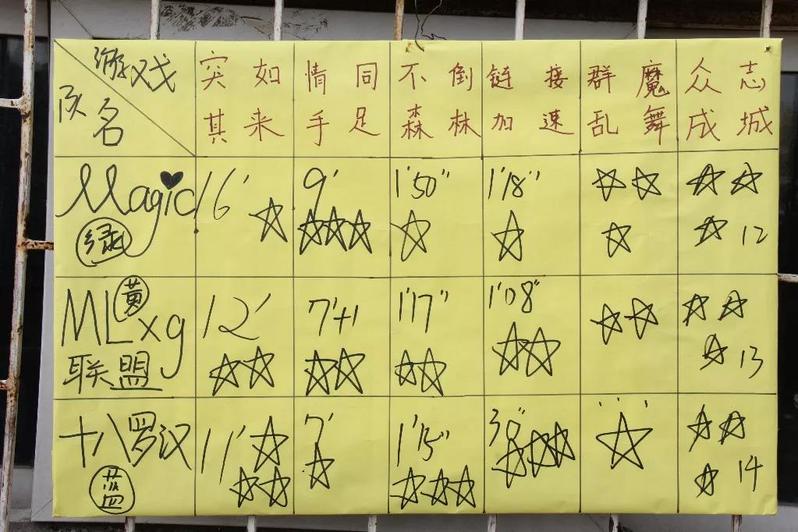 游戏
队名
突如其来
情同手足
不倒森林
链接加速
群魔乱舞
众志成城
Magic
绿
16′
9′
1′50″
1′18″
12
MLxg
黄
联盟
12′
7′+1
1′17″
1′08″
13
十八罗汉
蓝
11′
7′
1′15″
38″
14